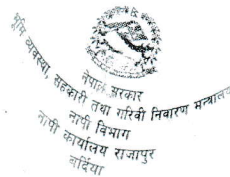 नेपाल सरकार
भूमि व्यवस्था, सहकारी तथा गरिवी निवारण मन्त्रालय
नापी विभाग
नापी कार्यालय राजापुर
बर्दिया